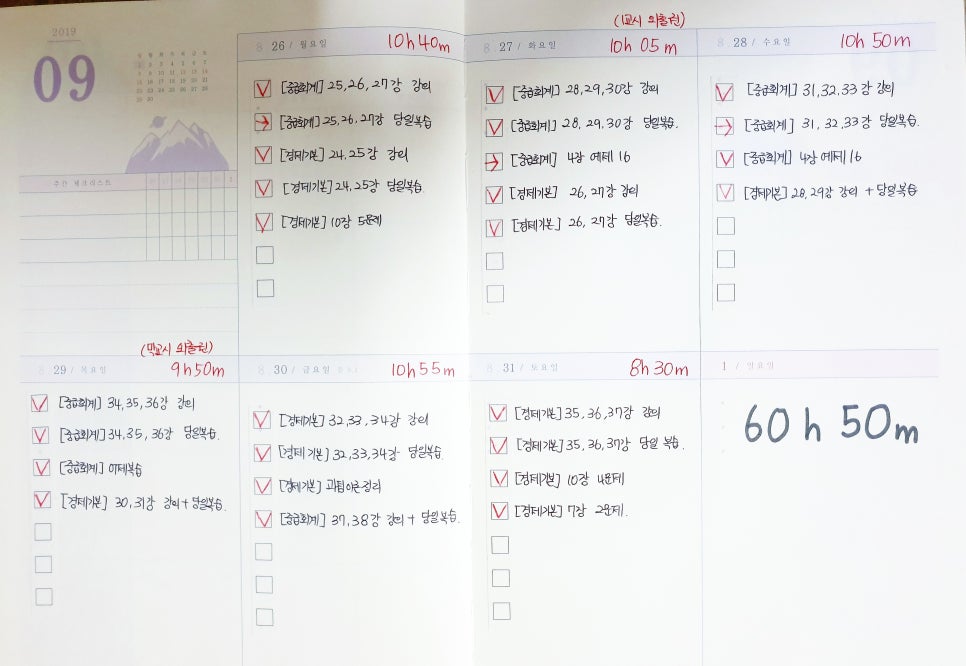 2019
09
주간 체크리스트
8 26 / 월요일 10h 40m
[중급회계] 25, 26, 27강 강의
[중급회계] 25, 26, 27강 당일복습
[경제기본] 24, 25강 강의
[경제기본] 24, 25강 당일복습
[경제기본] 10강 5문제
(1교시 외출원)
8 27 / 화요일 10h 05m
[중급회계] 28, 29, 30강 강의
[중급회계] 28, 29, 30강 당일복습.
[중급회계] 4장 예제 16
[경제기본] 26, 27강 강의
[경제기본] 26, 27강 당일복습.
8 28 / 수요일 10h 50m
[중급회계] 31, 32, 33강 강의
[중급회계] 31, 32, 33강 당일복습
[중급회계] 4장 예제 16
[경제기본] 28, 29강 강의 + 당일복습
(막교시 외출원)
8 29 / 목요일 9h 50m
[중급회계] 34, 35, 36강 강의
[중급회계] 34, 35, 36강 당일복습.
[중급회계] 어제복습
[경제기본] 30, 31강 강의 + 당일복습.
8 30 / 금요일 10h 55m
[경제기본] 32, 33, 34강 강의
[경제기본] 32, 33, 34강 당일복습.
[경제기본] 정리
[중급회계] 37, 38강 강의 + 당일복습.
8 31 / 토요일 8h 30m
[경제기본] 35, 36, 37강 강의
[경제기본] 35, 36, 37강 당일 복습.
[경제기본] 10강 4문제
[경제기본] 7강 2문제.
1 / 일요일
60h 50m